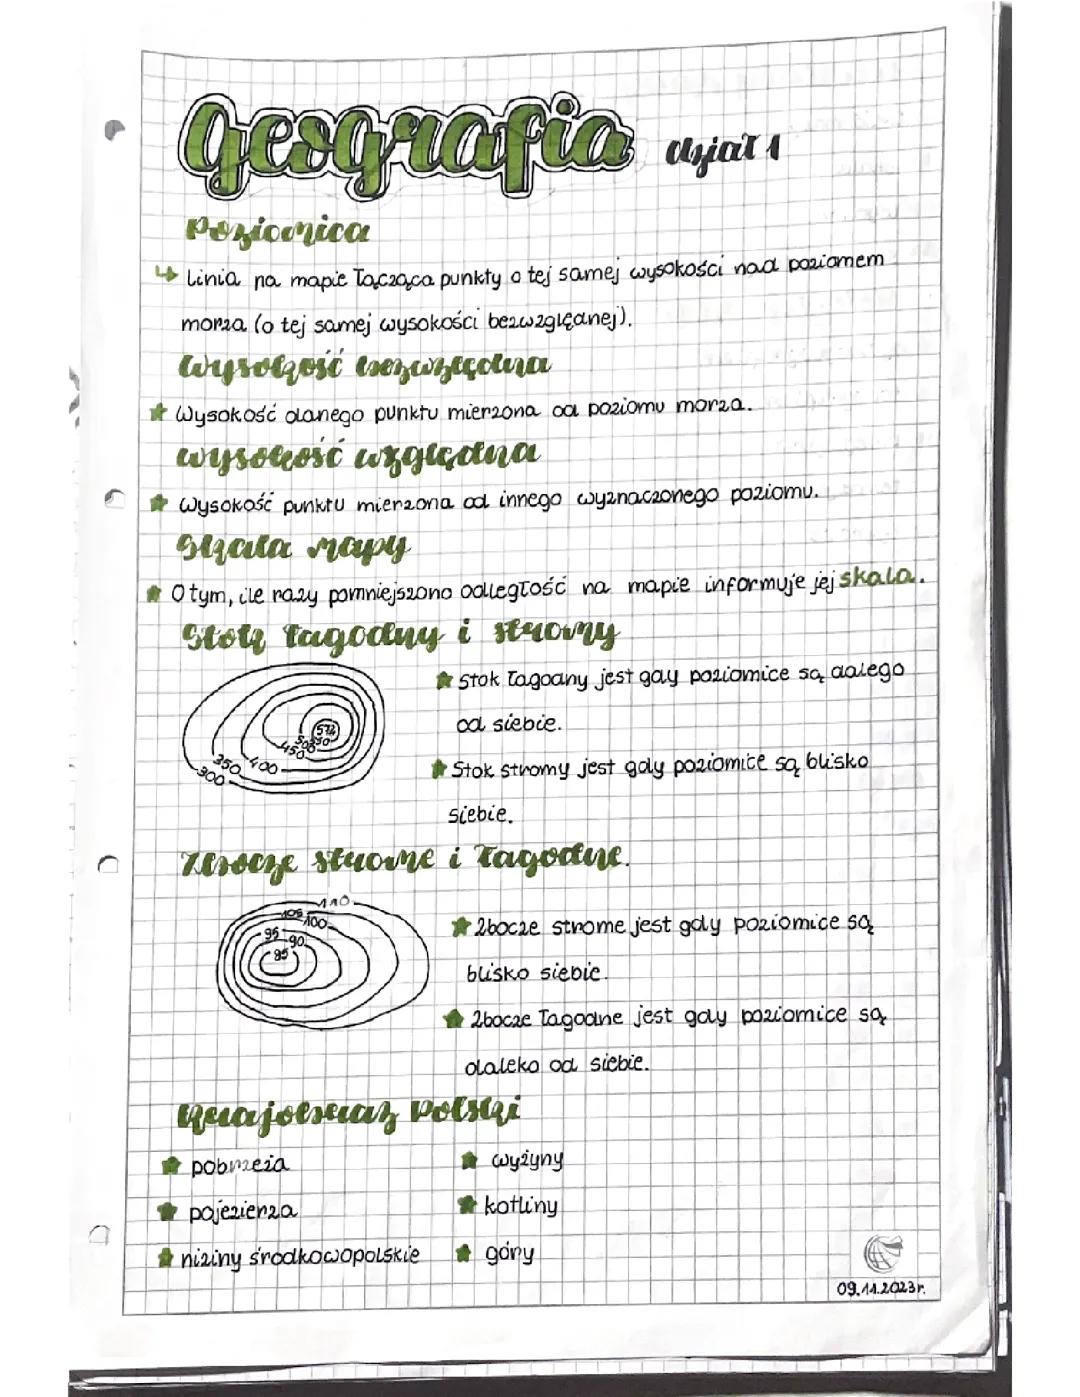 Geografia dział 1
Poziomica
↳ Linia na mapie łącząca punkty o tej samej wysokości nad poziomem
morza (o tej samej wysokości bezwzględnej).
Wysokość bezwzględna
★ Wysokość danego punktu mierzona od poziomu morza.
Wysokość względna
★ Wysokość punktu mierzona od innego wyznaczonego poziomu.
Skala mapy
★ O tym, ile razy pomniejszono odległość na mapie informuje jej skala.
Stok łagodny i stromy
★ Stok łagodny jest gdy poziomice są dalego
od siebie.
574
550
500
450
400
350
300
★ Stok stromy jest gdy poziomice są blisko
siebie.
Zbocze strome i łagodne.
110
105
100
95
90
85
★ Zbocze strome jest gdy poziomice są
blisko siebie.
★ Zbocze łagodne jest gdy poziomice są
daleko od siebie.
Krajobraz Polski
★ pobrzeża
★ wyżyny
★ pojezierza
★ kotliny
★ niziny środkowopolskie
★ góry
09.11.2023r.